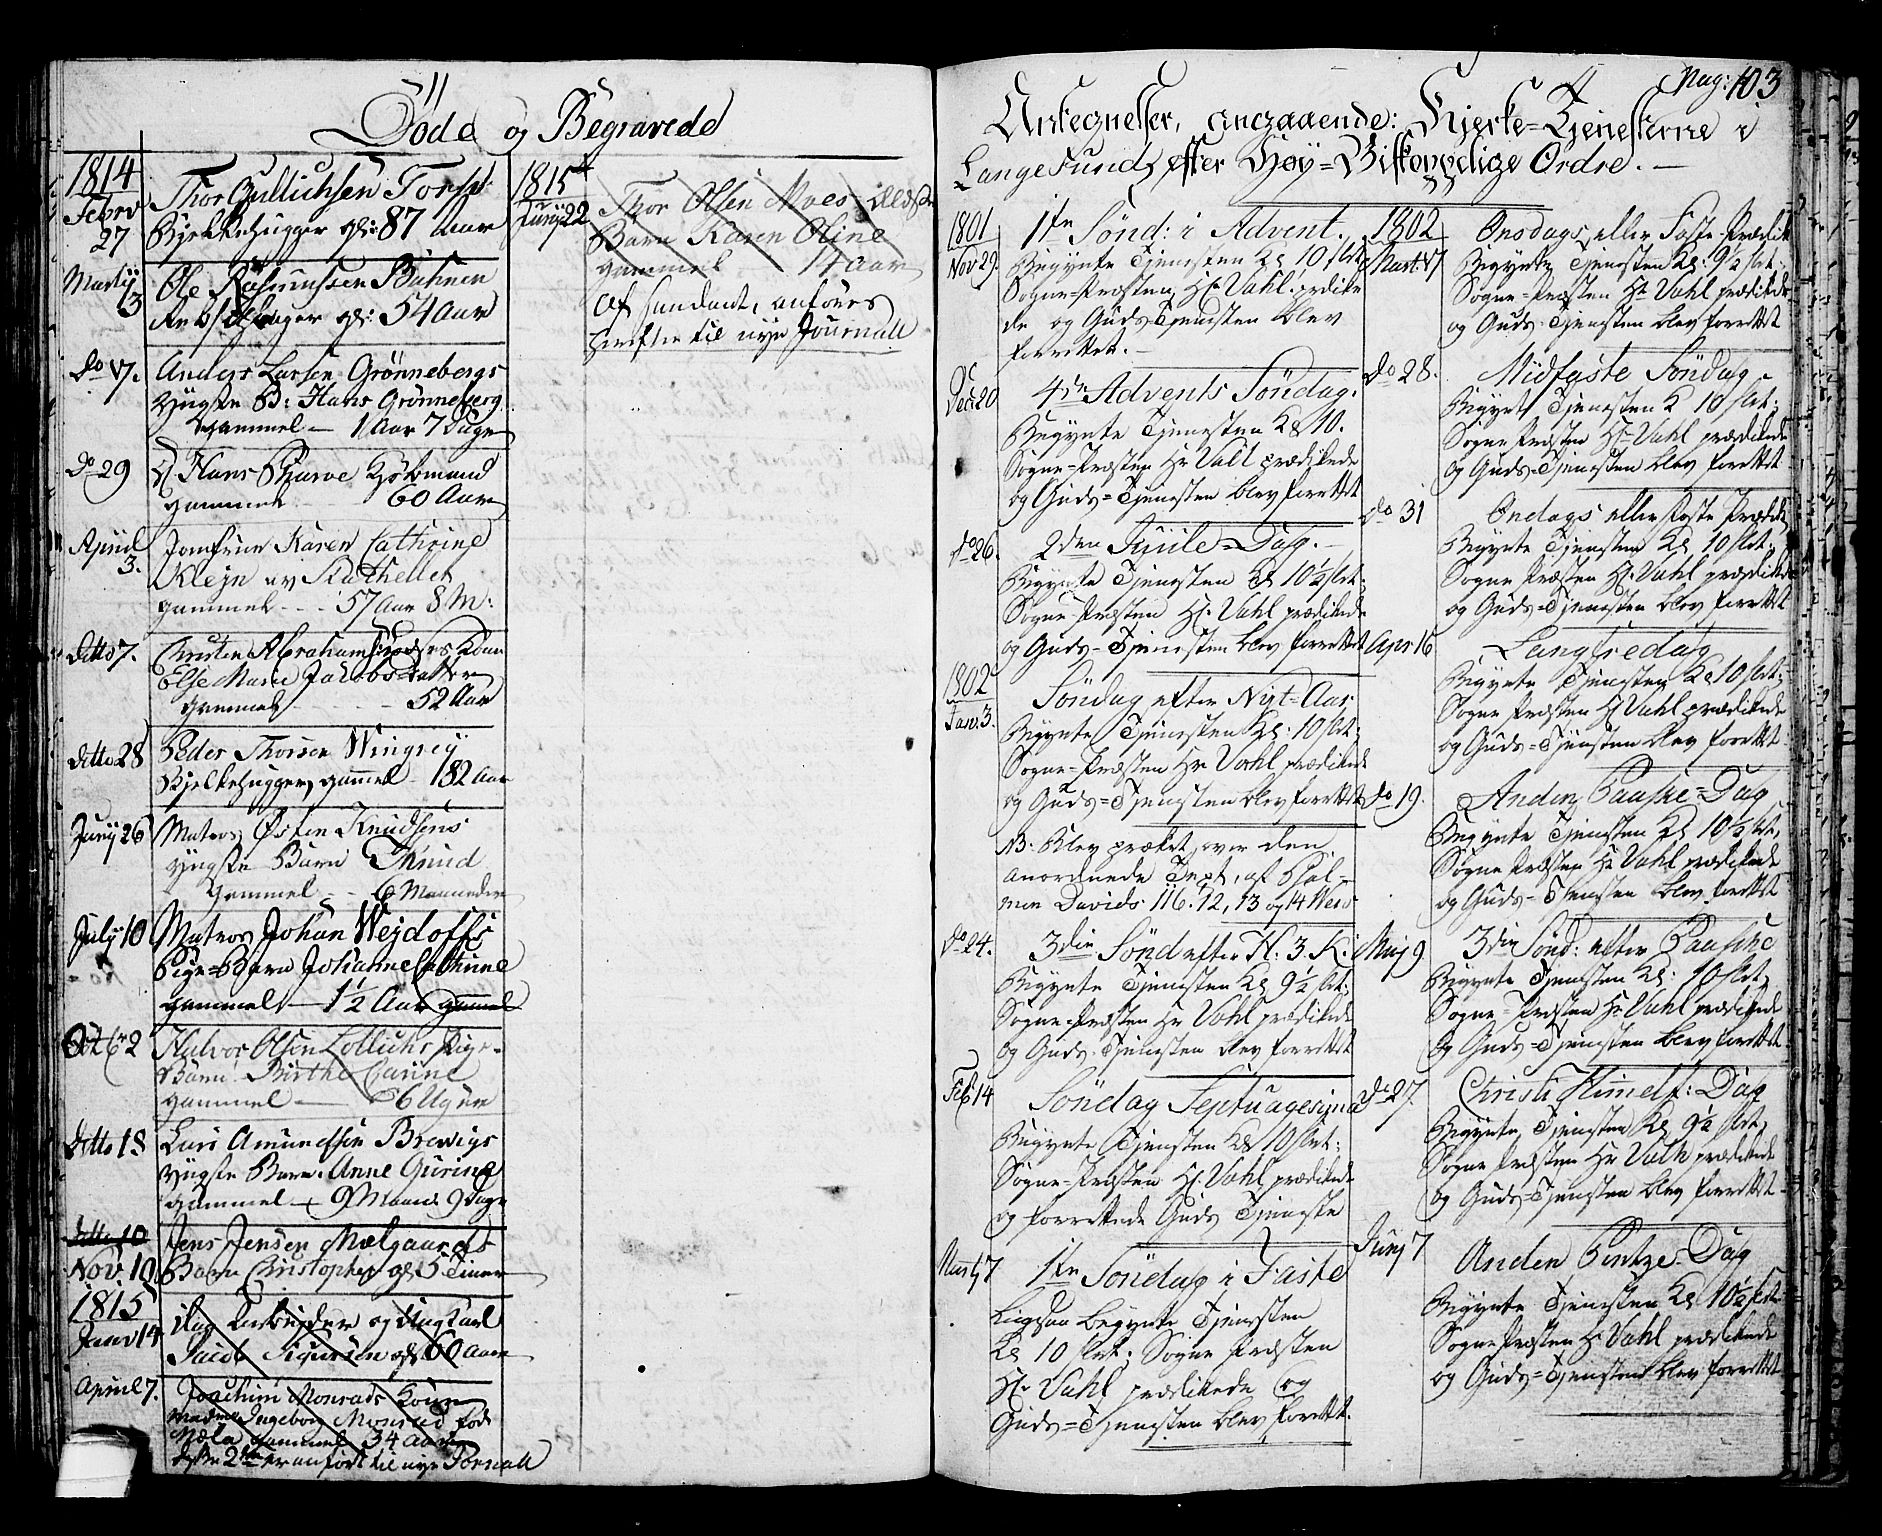 Döde og Begravede
1814
Febrv 27
Thor Gullichsen Tors
Bjelkehugger gl: 87 Aar
Martij 3
Ole Rasmussen Bahnen
Rebslager gl: 54 Aar
Do 17.
Anders Larsen Grönnebergs
Yngste B: Hans Grönneberg
Gammel — 1 Aar 7 Dage
Do 29
Hans Bhurve Kjöbmand
gammel 60 Aar
April 3.
Jomfrue Karen Cathrine
Klejn av Stathellet
gammel - - - 57 Aar 8 M:
Ditto 7.
Christen Abrahams Kone
Else Marie Jacobsdatter
gammel - - - 52 Aar
Ditto 28
Peder Thorsen Wingrej
Bjelkehugger, gammel - 82 Aar
Junij 26
Matros Østen Knudsens
Yngste Barn Knud
Gammel - - 6 Maaneder
July 10
Matros Johan Wejdorffs
Pige-Barn Johanne Cathrine
gammel — 1½ Aar gammel
Octbr 2
Halvor Olsen Lollichs Pige-
Barn Birthe Carine
gammel — 6 Uger
Ditto 18
Lars Amundsen Brewigs
Yngste Barn Anne Gurine
gammel — 9 Maand 9 Dage
Ditto 10
Nov 10
Jens Jensen Mælgaards
Barn Christopher gl: 5 Timer
1815
Janv 14
og Ungkarl
Jacob Sigursen gl: 60 Aar
April 7.
Joachim Monrads Kone
Madme Ingeborg Monrad föd
Mæla gammel 34 Aar
disse 2de er anfört til nye Jornall
1815
Junij 22
Thor Olsen Moes
Barn Karen Oline
gammel — 14 Aar
Af , anföres
herefter til nye Journall
Pag: 103
Antegnelser, angaaende: Kjerke-Tjenesterne i
Langesund, efter Høy-Biskoppelige Ordre. —
1801
Nov 29.
1te Sönd: i Advent.
Begynte Tjenesten Kl 10 slet
Sogne-Præsten Hr. Vahl prædike
de og Guds Tjenesten blev
forrettet. —
Dec: 20
4de Advents Söndag.
Begynte Tjenesten Kl 10.
Sogne-Præsten Hr Vahl prædikede
og Guds-Tjenesten blev forrettet
Do 26.
2den Juule-Dag. —
Begynte Tjenesten Kl 10½ slet:
Sogne-Præsten Hr. Vahl prædikede
og Guds-Tjenesten blev forrettet
1802
Janv. 3.
Söndag efter Nyt-Aar
Begynte Tjenesten Kl: 10 slet:
Sogne-Præsten Hr Vahl prædikede
og Guds-Tjenesten blev forrettet
NB: Blev præket over den
anordnede Text, af Psal-
men Davids 116. 12, 13 og 14 Vers
Do 24.
3die Sönd efter H: 3. K:
Begynte Tjenesten Kl 9½ slet:
Sogne-Præsten Hr Vahl prædikede
og Guds-Tjenesten blev forrettet
Feb 14
Söndag Septuagesima
Begynte Tjenesten Kl 10 slet:
Sogne-Præsten Hr. Vahl prædikede
og forrettede Guds Tjeneste
Martj 7
1te Söndag i Faste
Ligesaa begynte Tjenesten
Kl 10 slet: Sogne Præsten
Hr. Vahl prædikede og
Guds-Tjenesten blev forettet.
1802
Mart: 17
Onsdags eller Faste-Prædik
Begynte Tjenesten Kl: 9½ slet:
Sogne-Præsten Hr Vahl prædikede
og Guds-Tjenesten blev forrettet
Do 28.
Midfaste Söndag
Begynt Tjenesten K 10 slet:
Sogne Præsten Hr Vahl prædikede
og Guds-Tjenesten blev forettet
Do 31
Ondags eller Faste Prædik
Begynte Tjenesten Kl 10 slet:
Sogne Præsten Hr. Vahl prædikede
og Guds-Tjenesten blev forettet
Apr 16
Langfredag
Begynte Tjenesten Kl 10 slet:
Sogne Præsten Hr Vahl prædikede
og Guds-Tjensten blev forettet
Do 19.
Anden Paaske-Dag
Begynte Tjenesten Kl 10½ slet,
Sogne Præsten Hr Vahl prædikede
og Guds-Tjenesten blev forettet
Maj 9
3die Sönd: efter Paaske
Begynte Tjenesten Kl: 10 slet,
Sogne-Præsten Hr Vahl prædikede
og Guds-Tjenesten blev forettet
Do 27.
Christi Himelf: Dag
Begynte Tjenesten Kl 9½ slet,
Sogne Præsten Hr Vahl prædikede
og Guds-Tjenesten blev forrettet
Junj 7
Anden Pintze-Dag
Begynte Tjenesten Kl 10½ slet
Sogne Præsten Hr Vahl prædikede
og Guds-Tjenesten blev forrettet